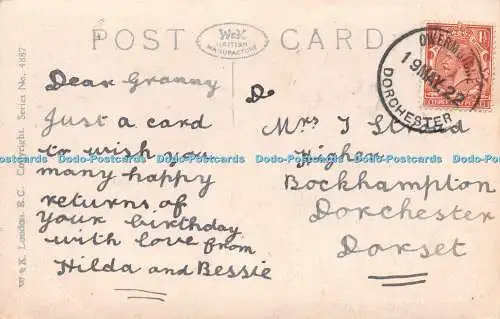 POST CARD
W&K
BRITISH
MANUFACTURE
OWERMOIGNE
19 MAY. 22
DORCHESTER
W & K. London. E.C. Copyright. Series No. 4887
Dear Granny
Just a card
to wish you
many happy
returns of
your birthday
with love from
Hilda and Bessie
Mrs J
Higher
Bockhampton
Dorchester
Dorset
Postcards-Data Postcards-Data Postcards-Data Postcards-Data Postcards-Data Postcards-Data